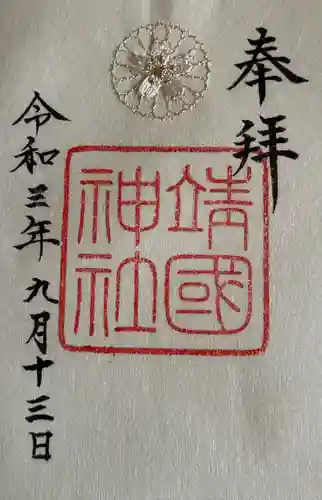 奉拝
靖國
神社
令和三年九月十三日